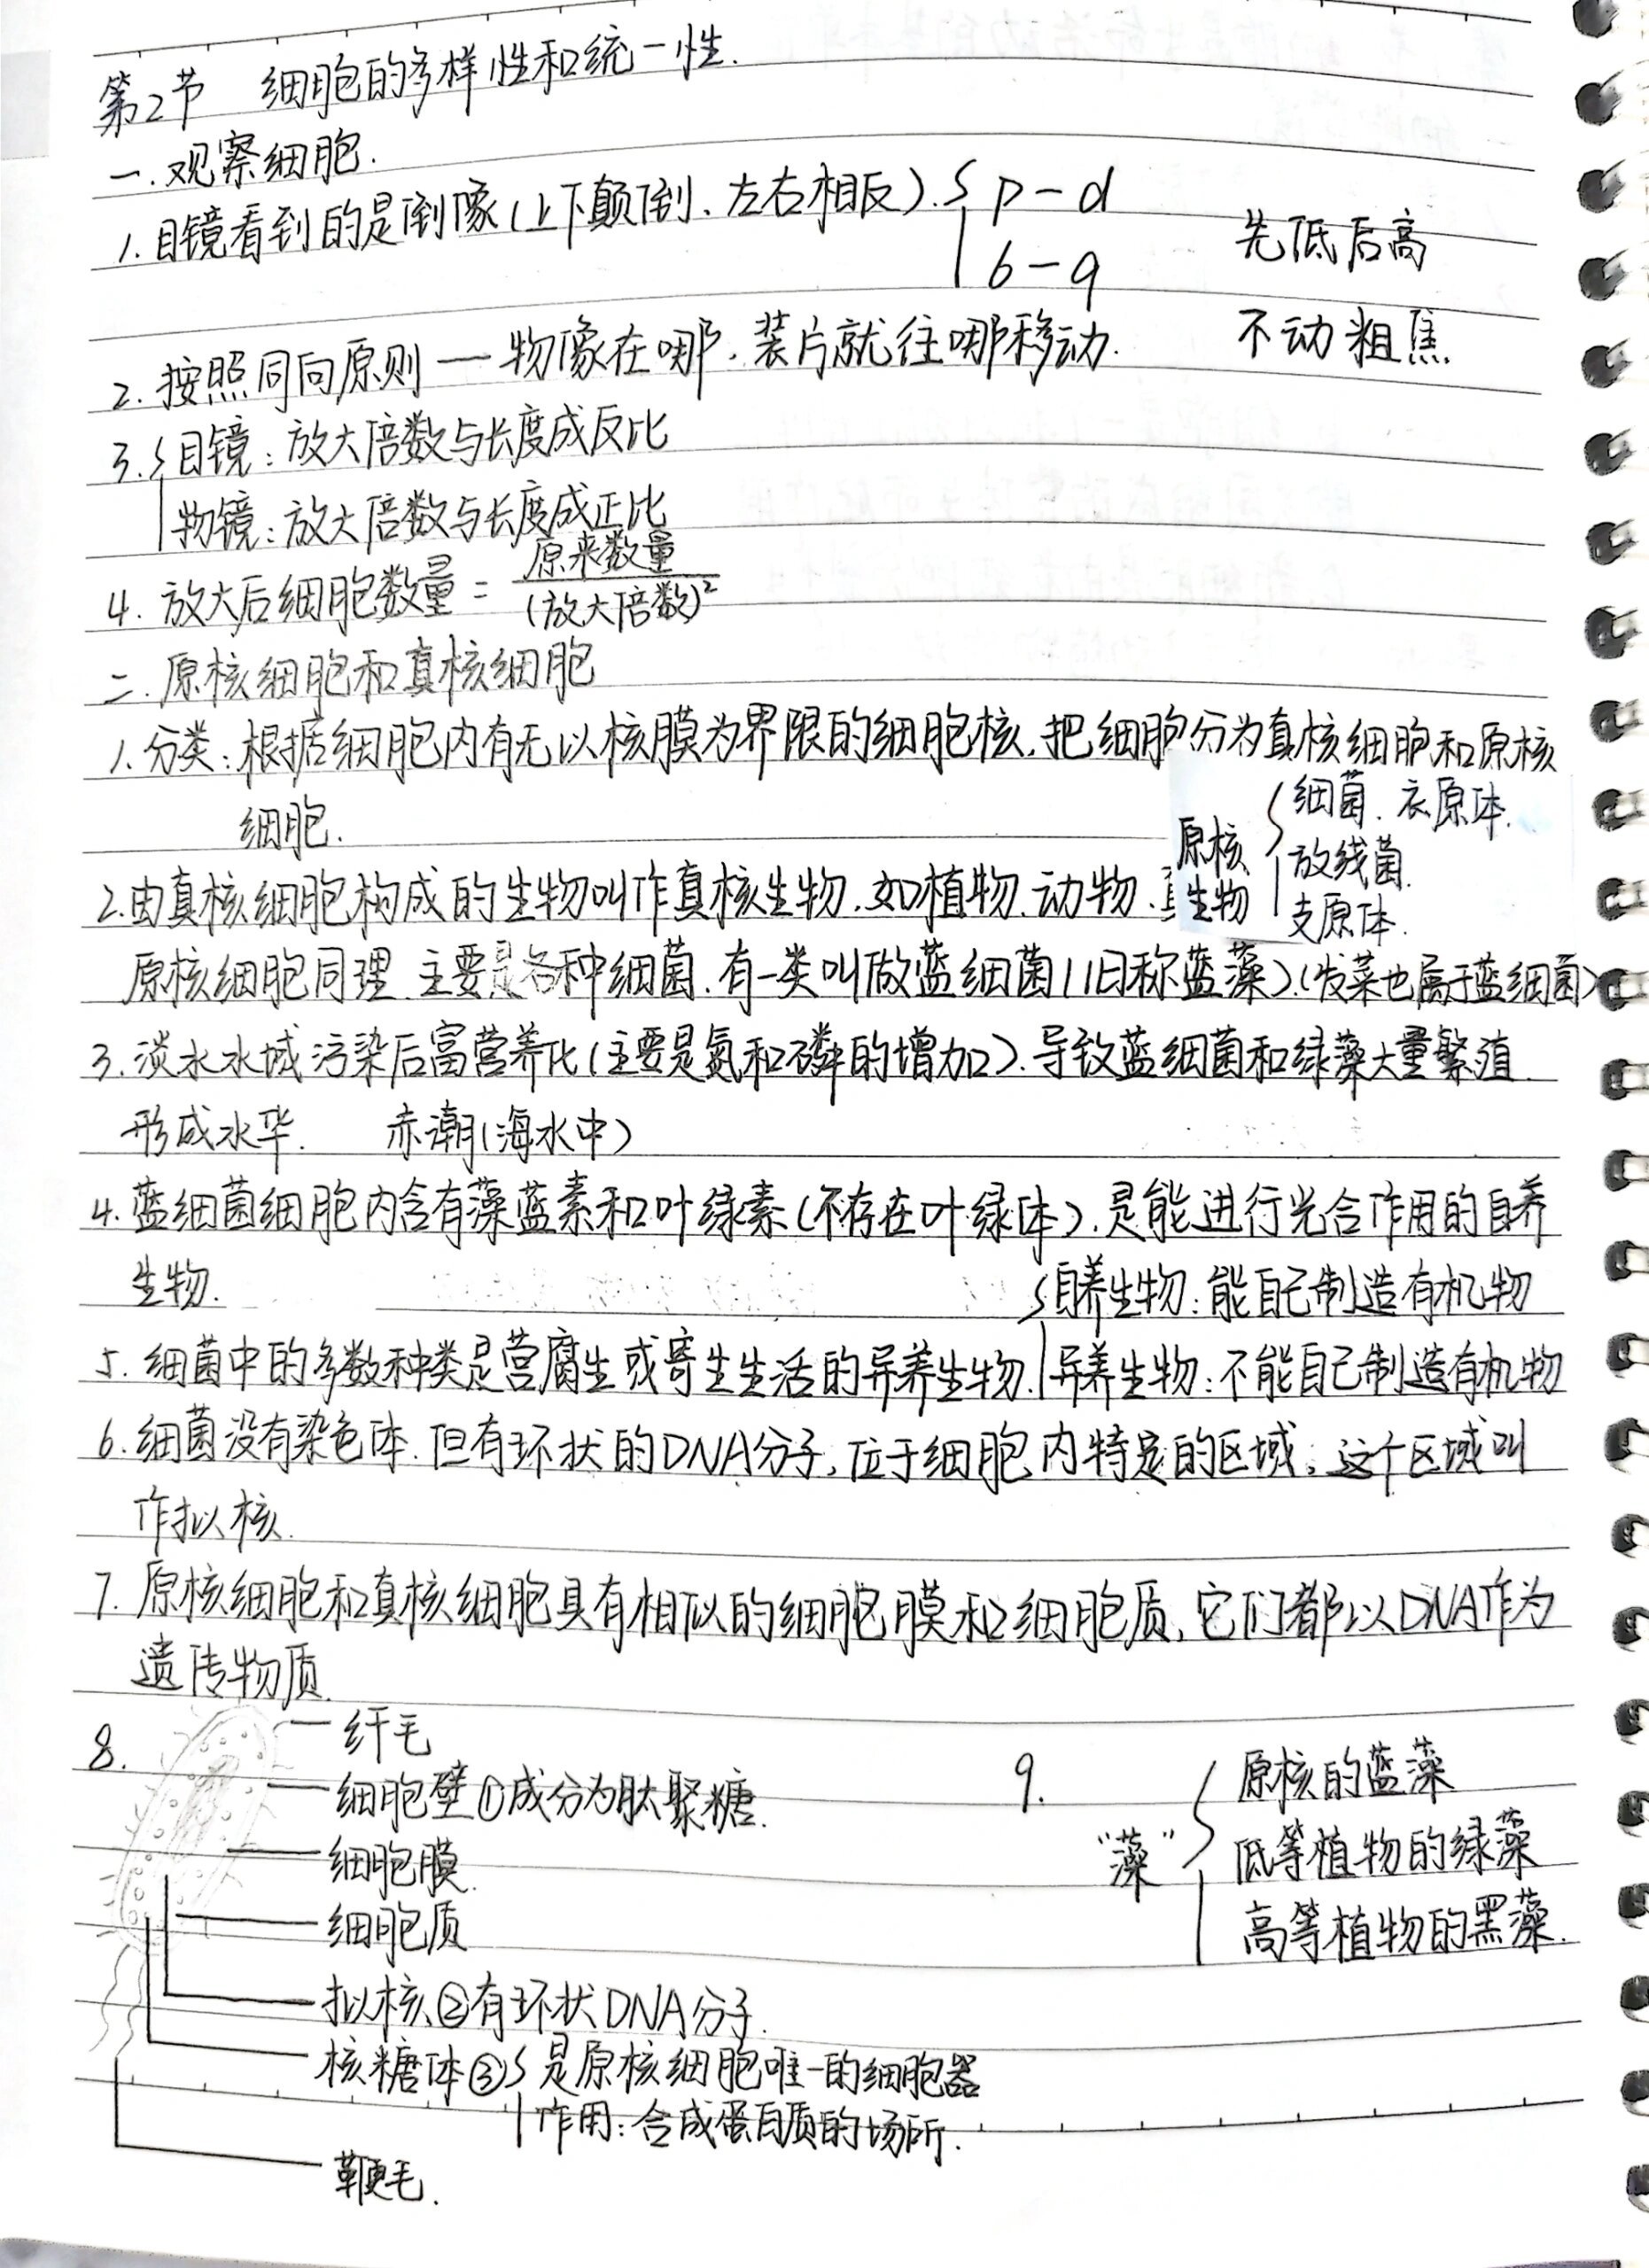 第2节 细胞的多样性和统一性.
一.观察细胞.
1.目镜看到的是倒像(上下颠倒、左右相反). { p-d
b-q
先低后高
不动粗焦
2.按照同向原则一物像在哪.装片就往哪移动.
3.{目镜:放大倍数与长度成反比
物镜:放大倍数与长度成正比
4.放大后细胞数量=原来数量/(放大倍数)²
二.原核细胞和真核细胞
1.分类:根据细胞内有无以核膜为界限的细胞核,把细胞分为真核细胞和原核
细胞.
原核生物 { 细菌.衣原体.
放线菌.
支原体.
2.由真核细胞构成的生物叫作真核生物.如植物.动物.
原核细胞同理.主要是各种细菌.有一类叫做蓝细菌(旧称蓝藻).(发菜也属于蓝细菌)
3.淡水水域污染后富营养化(主要是氮和磷的增加).导致蓝细菌和绿藻大量繁殖
形成水华. 赤潮(海水中)
4.蓝细菌细胞内含有藻蓝素和叶绿素(不存在叶绿体).是能进行光合作用的自养
生物.
{自养生物:能自己制造有机物
5.细菌中的多数种类是营腐生或寄生生活的异养生物. 异养生物:不能自己制造有机物
6.细菌没有染色体.但有环状的DNA分子,位于细胞内特定的区域,这个区域叫
作拟核.
7.原核细胞和真核细胞具有相似的细胞膜和细胞质,它们都以DNA作为
遗传物质.
8.
纤毛
细胞壁①成分为肽聚糖.
细胞膜.
细胞质
拟核②有环状DNA分子.
核糖体③{是原核细胞唯一的细胞器
作用:合成蛋白质的场所.
鞭毛.
9.
"藻" { 原核的蓝藻
低等植物的绿藻
高等植物的黑藻.